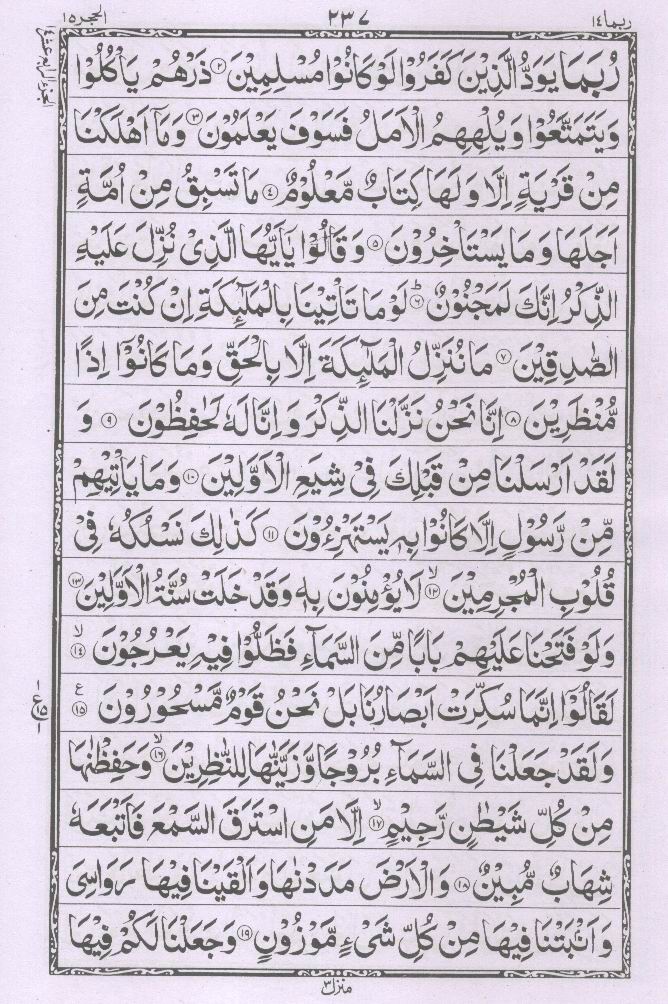 ربما ١٤
٢٣٧
الحجر ١٥
الجزء الرابع عشر ١٤
رُبَمَا يَوَدُّ الَّذِيْنَ كَفَرُوْا لَوْ كَانُوْا مُسْلِمِيْنَ ۝٢ ذَرْهُمْ يَاْكُلُوْا
وَيَتَمَتَّعُوْا وَيُلْهِهِمُ الْاَمَلُ فَسَوْفَ يَعْلَمُوْنَ ۝٣ وَمَآ اَهْلَكْنَا
مِنْ قَرْيَةٍ اِلَّا وَلَهَا كِتَابٌ مَّعْلُوْمٌ ۝٤ مَا تَسْبِقُ مِنْ اُمَّةٍ
اَجَلَهَا وَمَا يَسْتَاْخِرُوْنَ ۝٥ وَقَالُوْا يٰٓاَيُّهَا الَّذِيْ نُزِّلَ عَلَيْهِ
الذِّكْرُ اِنَّكَ لَمَجْنُوْنٌ ۝٦ؕ لَوْ مَا تَاْتِيْنَا بِالْمَلٰٓئِكَةِ اِنْ كُنْتَ مِنَ
الصّٰدِقِيْنَ ۝٧ مَا نُنَزِّلُ الْمَلٰٓئِكَةَ اِلَّا بِالْحَقِّ وَمَا كَانُوْٓا اِذًا
مُّنْظَرِيْنَ ۝٨ اِنَّا نَحْنُ نَزَّلْنَا الذِّكْرَ وَاِنَّا لَهٗ لَحٰفِظُوْنَ ۝٩ وَ
لَقَدْ اَرْسَلْنَا مِنْ قَبْلِكَ فِيْ شِيَعِ الْاَوَّلِيْنَ ۝١٠ وَمَا يَاْتِيْهِمْ
مِّنْ رَّسُوْلٍ اِلَّا كَانُوْا بِهٖ يَسْتَهْزِءُوْنَ ۝١١ كَذٰلِكَ نَسْلُكُهٗ فِيْ
قُلُوْبِ الْمُجْرِمِيْنَ ۝١٢ۙ لَا يُؤْمِنُوْنَ بِهٖ وَقَدْ خَلَتْ سُنَّةُ الْاَوَّلِيْنَ ۝١٣
وَلَوْ فَتَحْنَا عَلَيْهِمْ بَابًا مِّنَ السَّمَآءِ فَظَلُّوْا فِيْهِ يَعْرُجُوْنَ ۝١٤ۙ
لَقَالُوْٓا اِنَّمَا سُكِّرَتْ اَبْصَارُنَا بَلْ نَحْنُ قَوْمٌ مَّسْحُوْرُوْنَ ۝١٥ ع
وَلَقَدْ جَعَلْنَا فِي السَّمَآءِ بُرُوْجًا وَّزَيَّنّٰهَا لِلنّٰظِرِيْنَ ۝١٦ۙ وَحَفِظْنٰهَا
مِنْ كُلِّ شَيْطٰنٍ رَّجِيْمٍ ۝١٧ۙ اِلَّا مَنِ اسْتَرَقَ السَّمْعَ فَاَتْبَعَهٗ
شِهَابٌ مُّبِيْنٌ ۝١٨ وَالْاَرْضَ مَدَدْنٰهَا وَاَلْقَيْنَا فِيْهَا رَوَاسِيَ
وَاَنْۢبَتْنَا فِيْهَا مِنْ كُلِّ شَيْءٍ مَّوْزُوْنٍ ۝١٩ وَجَعَلْنَا لَكُمْ فِيْهَا
منزل ٣